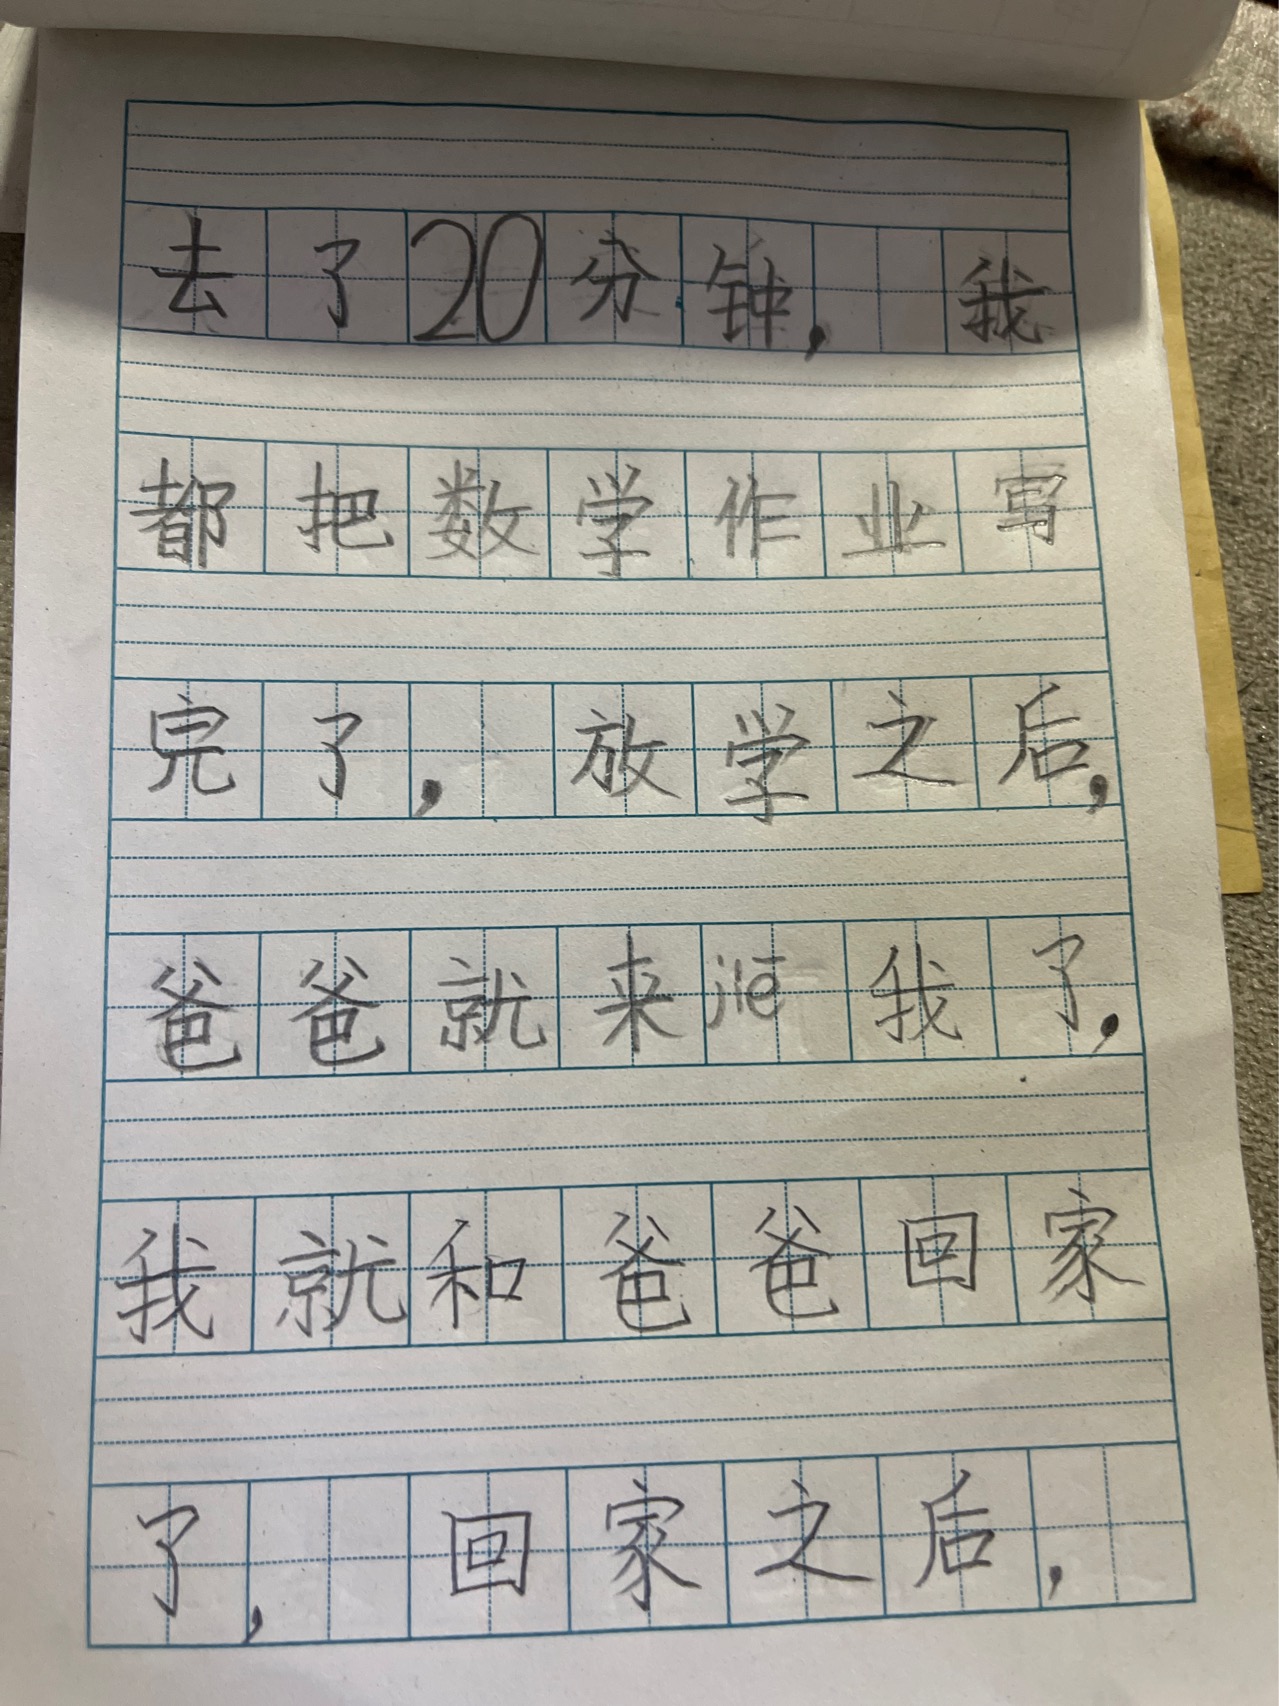 去了20分钟，我
都把数学作业写
完了，放学之后，
爸爸就来jiē我了，
我就和爸爸回家
了，回家之后，